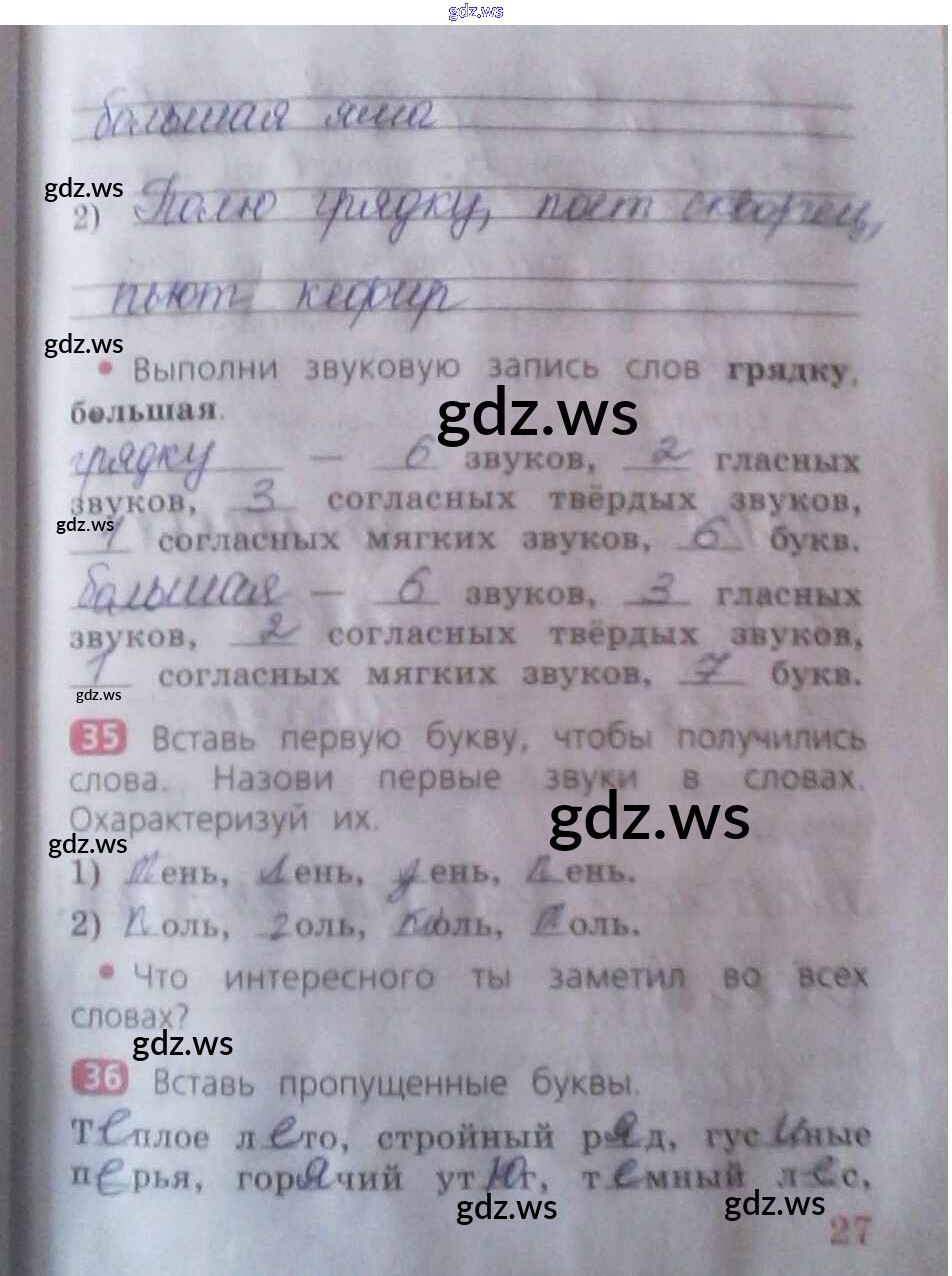 gdz.ws
большая яма
gdz.ws
2) Полю грядку, поёт скворец,
пьют кефир
gdz.ws
• Выполни звуковую запись слов грядку,
большая.
gdz.ws
грядку — 6 звуков, 2 гласных
звуков, 3 согласных твёрдых звуков,
gdz.ws
1 согласных мягких звуков, 6 букв.
большая — 6 звуков, 3 гласных
звуков, 2 согласных твёрдых звуков,
1 согласных мягких звуков, 7 букв.
gdz.ws
35 Вставь первую букву, чтобы получились
слова. Назови первые звуки в словах.
Охарактеризуй их.
gdz.ws
gdz.ws
1) Пень, лень, день, ень.
2) оль, голь, оль, оль.
• Что интересного ты заметил во всех
словах?
gdz.ws
36 Вставь пропущенные буквы.
Теплое лето, стройный ряд, гусиные
перья, горячий утюг, темный лес,
gdz.ws
gdz.ws
27